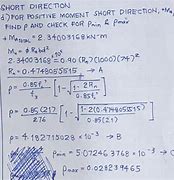 SHORT DIRECTION
d) FOR POSITIVE MOMENT SHORT DIRECTION, +Ma
FIND ρ AND CHECK FOR ρmin & ρmax
= 2.34003168 kN-m
Mu = ϕRnbd²
2.34003168 = 0.90 (Rn)(1000)(74)²
Rn = 0.4748055515 → A
ρ = 0.85fc' [1 - √1 - 2Rn
ρ = 0.85(21) [1 - √1 - 2(0.4748055515)
276 0.85(21)
ρ = 4.182715028 × 10⁻³ → B
ρmin = 5.072463768 × 10⁻³ → C
ρmax = 0.02839464